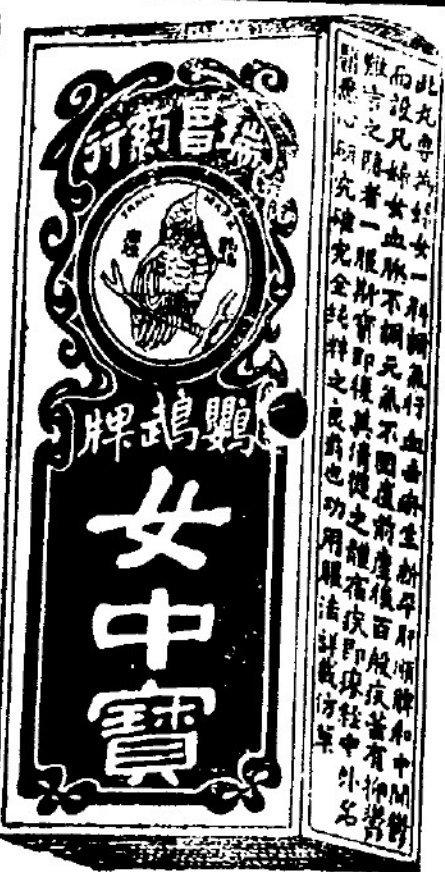 瑞昌葯行
TRADE MARK
註冊
商標
鸚鵡牌
女中寶
此丸專為婦女一科調氣行血去瘀生新平肝順脾和中開鬱
而設凡婦女血脈不調元氣不固產前產後百般疾苦有抑鬱
難言之隱者一服斯寶即復其清健之體宿疾即瘳經中外名
醫悉心研究確完全純粹之良劑也功用服法詳載仿單